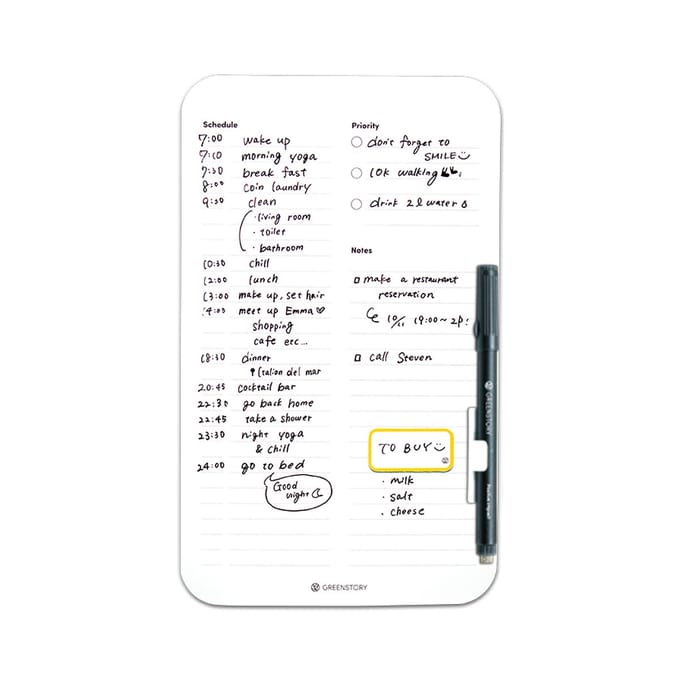 Schedule
7:00 wake up
7:10 morning yoga
7:30 break fast
8:00 coin laundry
9:30 clean
· living room
· toilet
· bathroom
10:30 chill
12:00 lunch
13:00 make up, set hair
14:00 meet up Emma♡
shopping
cafe etc...
18:30 dinner
Italian del mar
20:45 cocktail bar
22:30 go back home
22:45 take a shower
23:30 night yoga
& chill
24:00 go to bed
Good
night
Priority
don't forget to
SMILE
10k walking
drink 2l water
Notes
make a restaurant
reservation
10/11 19:00~
call Steven
TO BUY
· milk
· salt
· cheese
GREENSTORY
GREENSTORY